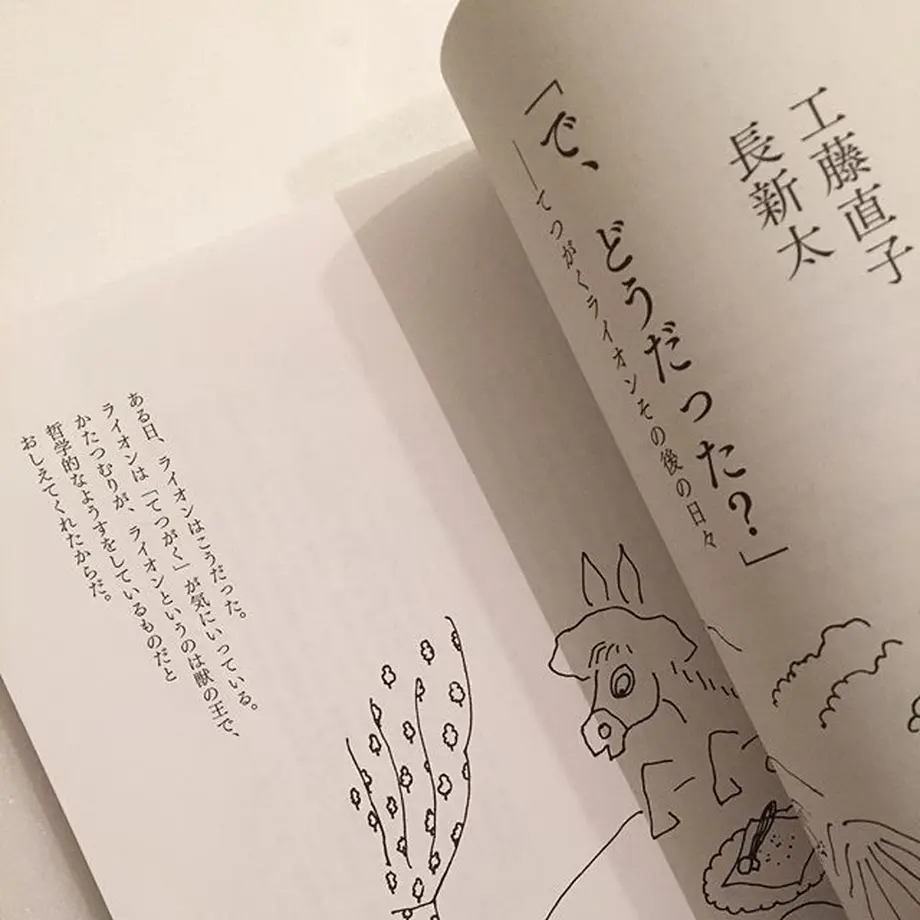 工藤直子
長新太
「で、どうだった?」
―てつがくライオンその後の日々
ある日、ライオンはこうだった。
ライオンは「てつがく」が気にいっている。
かたつむりが、ライオンというのは獣の王で、
哲学的なようすをしているものだと
おしえてくれたからだ。